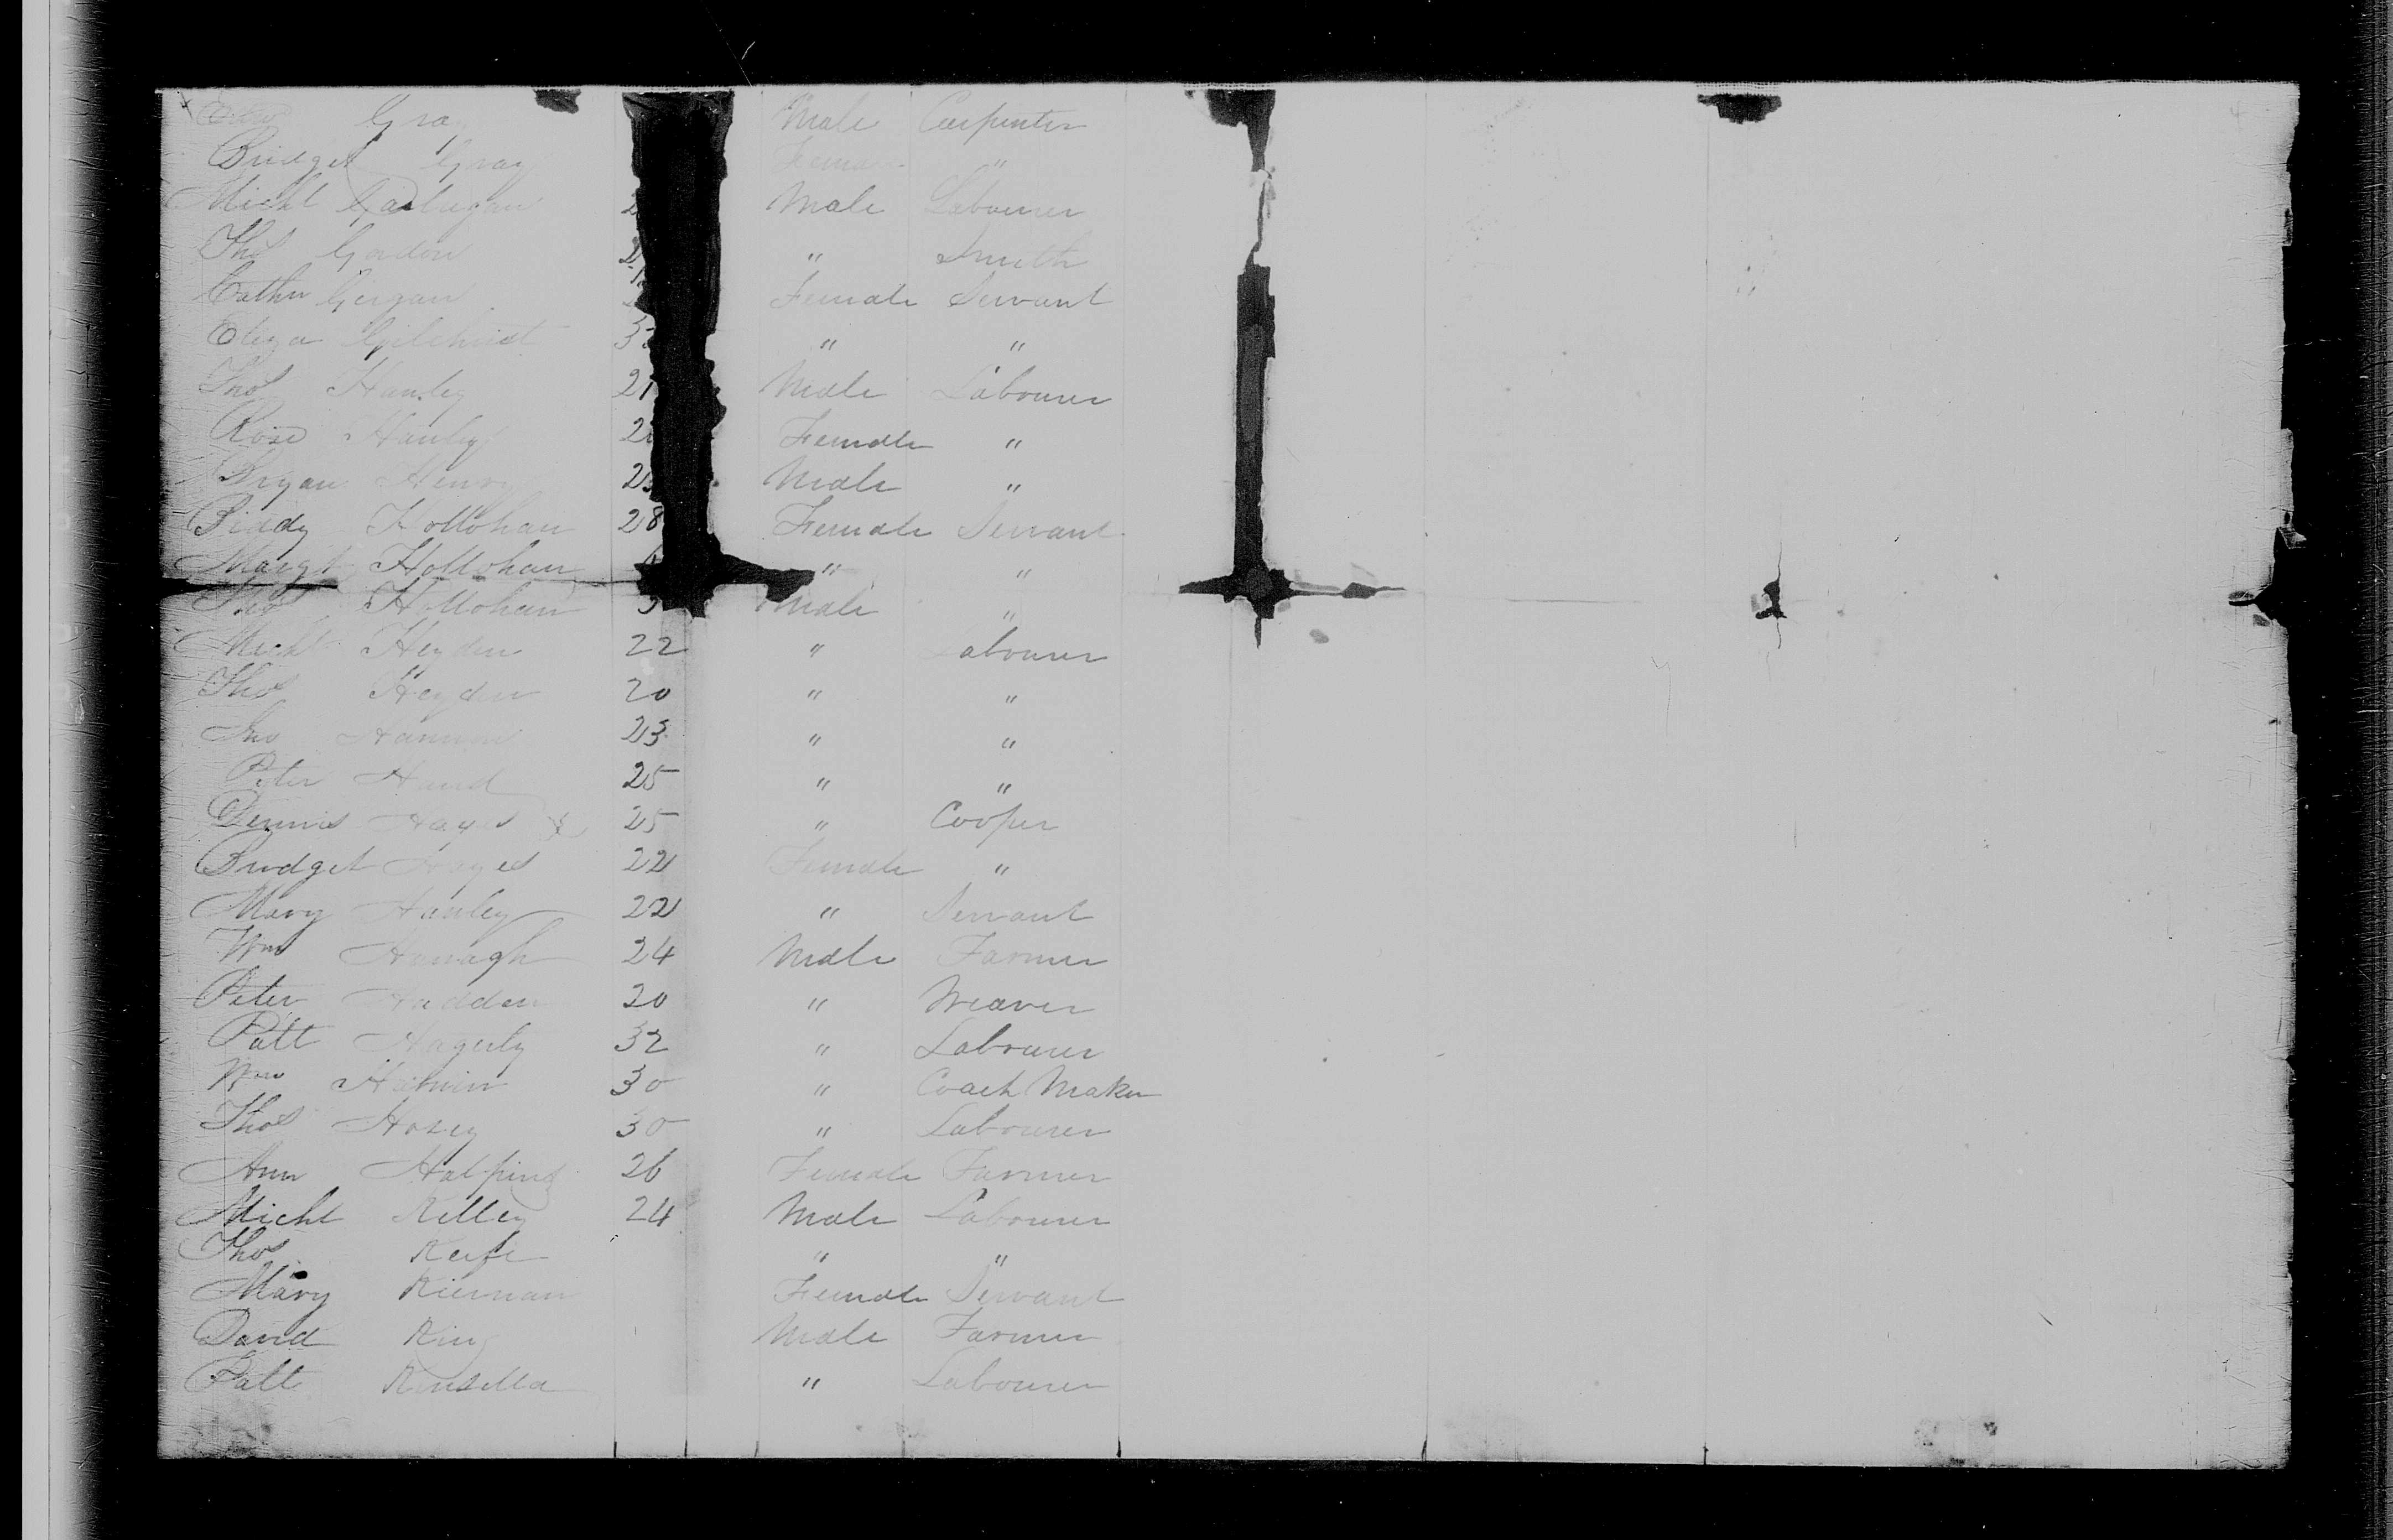 Gray Male Carpenter
Bridget Gray Female "
Michl 2 Male Labourer
Thos Gordon 2 " Smith
Cathn Geigan Female Servant
Eliza Gilchrist 3 " "
Thos Hanley 21 Male Labourer
Rose Hanley 2 Female "
Bryan Henry 2 Male "
Biddy Hollohan 28 Female Servant
Margt Hollohan " "
Thos Hollohan Male "
Michl Heyden 22 " Labourer
Thos Heyden 20 " "
Jno 23 " "
Peter Hand 25 " "
Dennis Hayes 25 " Cooper
Bridget Hayes 22 Female "
Mary Hanley 22 " Servant
Wm Hanagh 24 Male Farmer
Peter Hadden 20 " Weaver
Patt Hagerty 32 " Labourer
Wm 30 " Coach Maker
Thos Hosey 30 " Labourer
Ann Halpin 26 Female Farmer
Michl Kelley 24 Male Labourer
Thos Keefe " "
Mary Kiernan Female Servant
David King Male Farmer
Patt Kinsella " Labourer